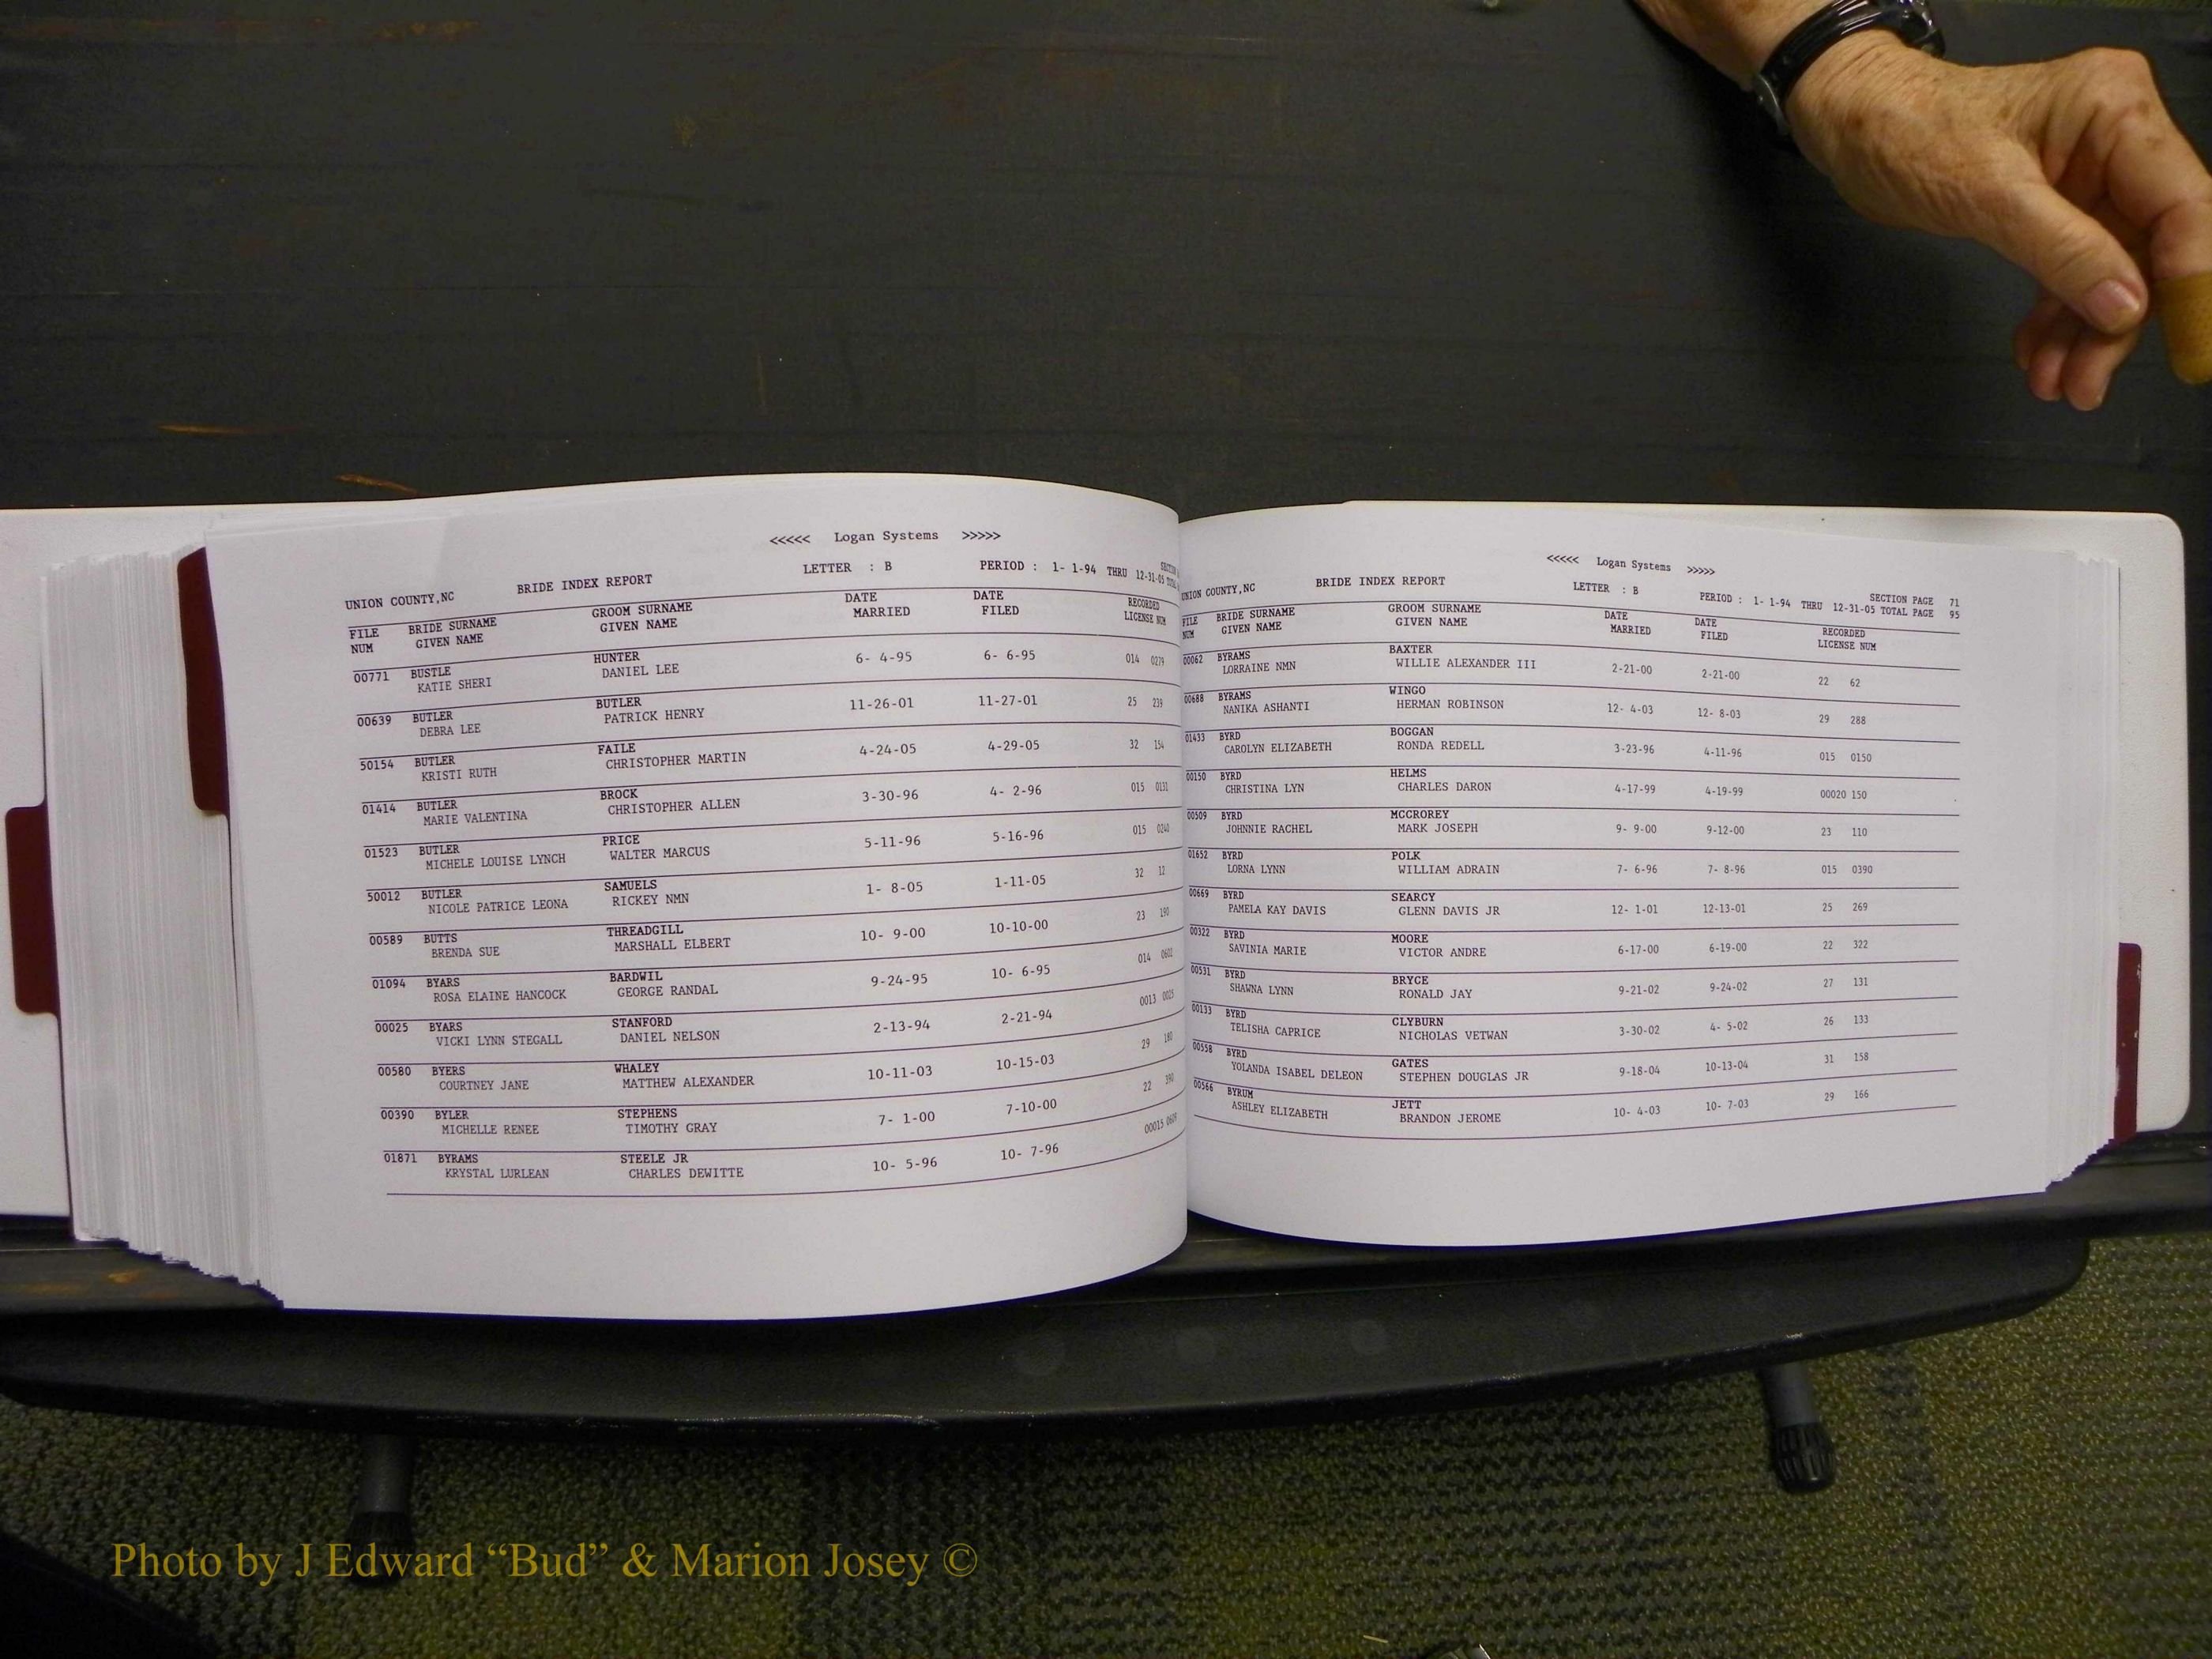 <<<<< Logan Systems >>>>>
UNION COUNTY,NC BRIDE INDEX REPORT LETTER : B PERIOD : 1- 1-94 THRU 12-31-05
FILE BRIDE SURNAME GROOM SURNAME DATE DATE RECORDED
NUM GIVEN NAME GIVEN NAME MARRIED FILED LICENSE NUM
00771 BUSTLE HUNTER 6- 4-95 6- 6-95 014 0279
KATIE SHERI DANIEL LEE
00639 BUTLER BUTLER 11-26-01 11-27-01 25 239
DEBRA LEE PATRICK HENRY
50154 BUTLER FAILE 4-24-05 4-29-05 32 154
KRISTI RUTH CHRISTOPHER MARTIN
01414 BUTLER BROCK 3-30-96 4- 2-96 015 0131
MARIE VALENTINA CHRISTOPHER ALLEN
01523 BUTLER PRICE 5-11-96 5-16-96 015 0240
MICHELE LOUISE LYNCH WALTER MARCUS
50012 BUTLER SAMUELS 1- 8-05 1-11-05 32 12
NICOLE PATRICE LEONA RICKEY NMN
00589 BUTTS THREADGILL 10- 9-00 10-10-00 23 190
BRENDA SUE MARSHALL ELBERT
01094 BYARS BARDWIL 9-24-95 10- 6-95 014 0602
ROSA ELAINE HANCOCK GEORGE RANDAL
00025 BYARS STANFORD 2-13-94 2-21-94 0013 0025
VICKI LYNN STEGALL DANIEL NELSON
00580 BYERS WHALEY 10-11-03 10-15-03 29 180
COURTNEY JANE MATTHEW ALEXANDER
00390 BYLER STEPHENS 7- 1-00 7-10-00 22 390
MICHELLE RENEE TIMOTHY GRAY
01871 BYRAMS STEELE JR 10- 5-96 10- 7-96 00015 0609
KRYSTAL LURLEAN CHARLES DEWITTE
<<<<< Logan Systems >>>>>
UNION COUNTY,NC BRIDE INDEX REPORT LETTER : B PERIOD : 1- 1-94 THRU 12-31-05 SECTION PAGE 71
TOTAL PAGE 95
FILE BRIDE SURNAME GROOM SURNAME DATE DATE RECORDED
NUM GIVEN NAME GIVEN NAME MARRIED FILED LICENSE NUM
00062 BYRAMS BAXTER 2-21-00 2-21-00 22 62
LORRAINE NMN WILLIE ALEXANDER III
00688 BYRAMS WINGO 12- 4-03 12- 8-03 29 288
NANIKA ASHANTI HERMAN ROBINSON
01433 BYRD BOGGAN 3-23-96 4-11-96 015 0150
CAROLYN ELIZABETH RONDA REDELL
00150 BYRD HELMS 4-17-99 4-19-99 00020 150
CHRISTINA LYN CHARLES DARON
00509 BYRD MCCROREY 9- 9-00 9-12-00 23 110
JOHNNIE RACHEL MARK JOSEPH
01652 BYRD POLK 7- 6-96 7- 8-96 015 0390
LORNA LYNN WILLIAM ADRAIN
00669 BYRD SEARCY 12- 1-01 12-13-01 25 269
PAMELA KAY DAVIS GLENN DAVIS JR
00322 BYRD MOORE 6-17-00 6-19-00 22 322
SAVINIA MARIE VICTOR ANDRE
00531 BYRD BRYCE 9-21-02 9-24-02 27 131
SHAWNA LYNN RONALD JAY
00133 BYRD CLYBURN 3-30-02 4- 5-02 26 133
TELISHA CAPRICE NICHOLAS VETWAN
00558 BYRD GATES 9-18-04 10-13-04 31 158
YOLANDA ISABEL DELEON STEPHEN DOUGLAS JR
00566 BYRUM JETT 10- 4-03 10- 7-03 29 166
ASHLEY ELIZABETH BRANDON JEROME
Photo by J Edward “Bud” & Marion Josey ©